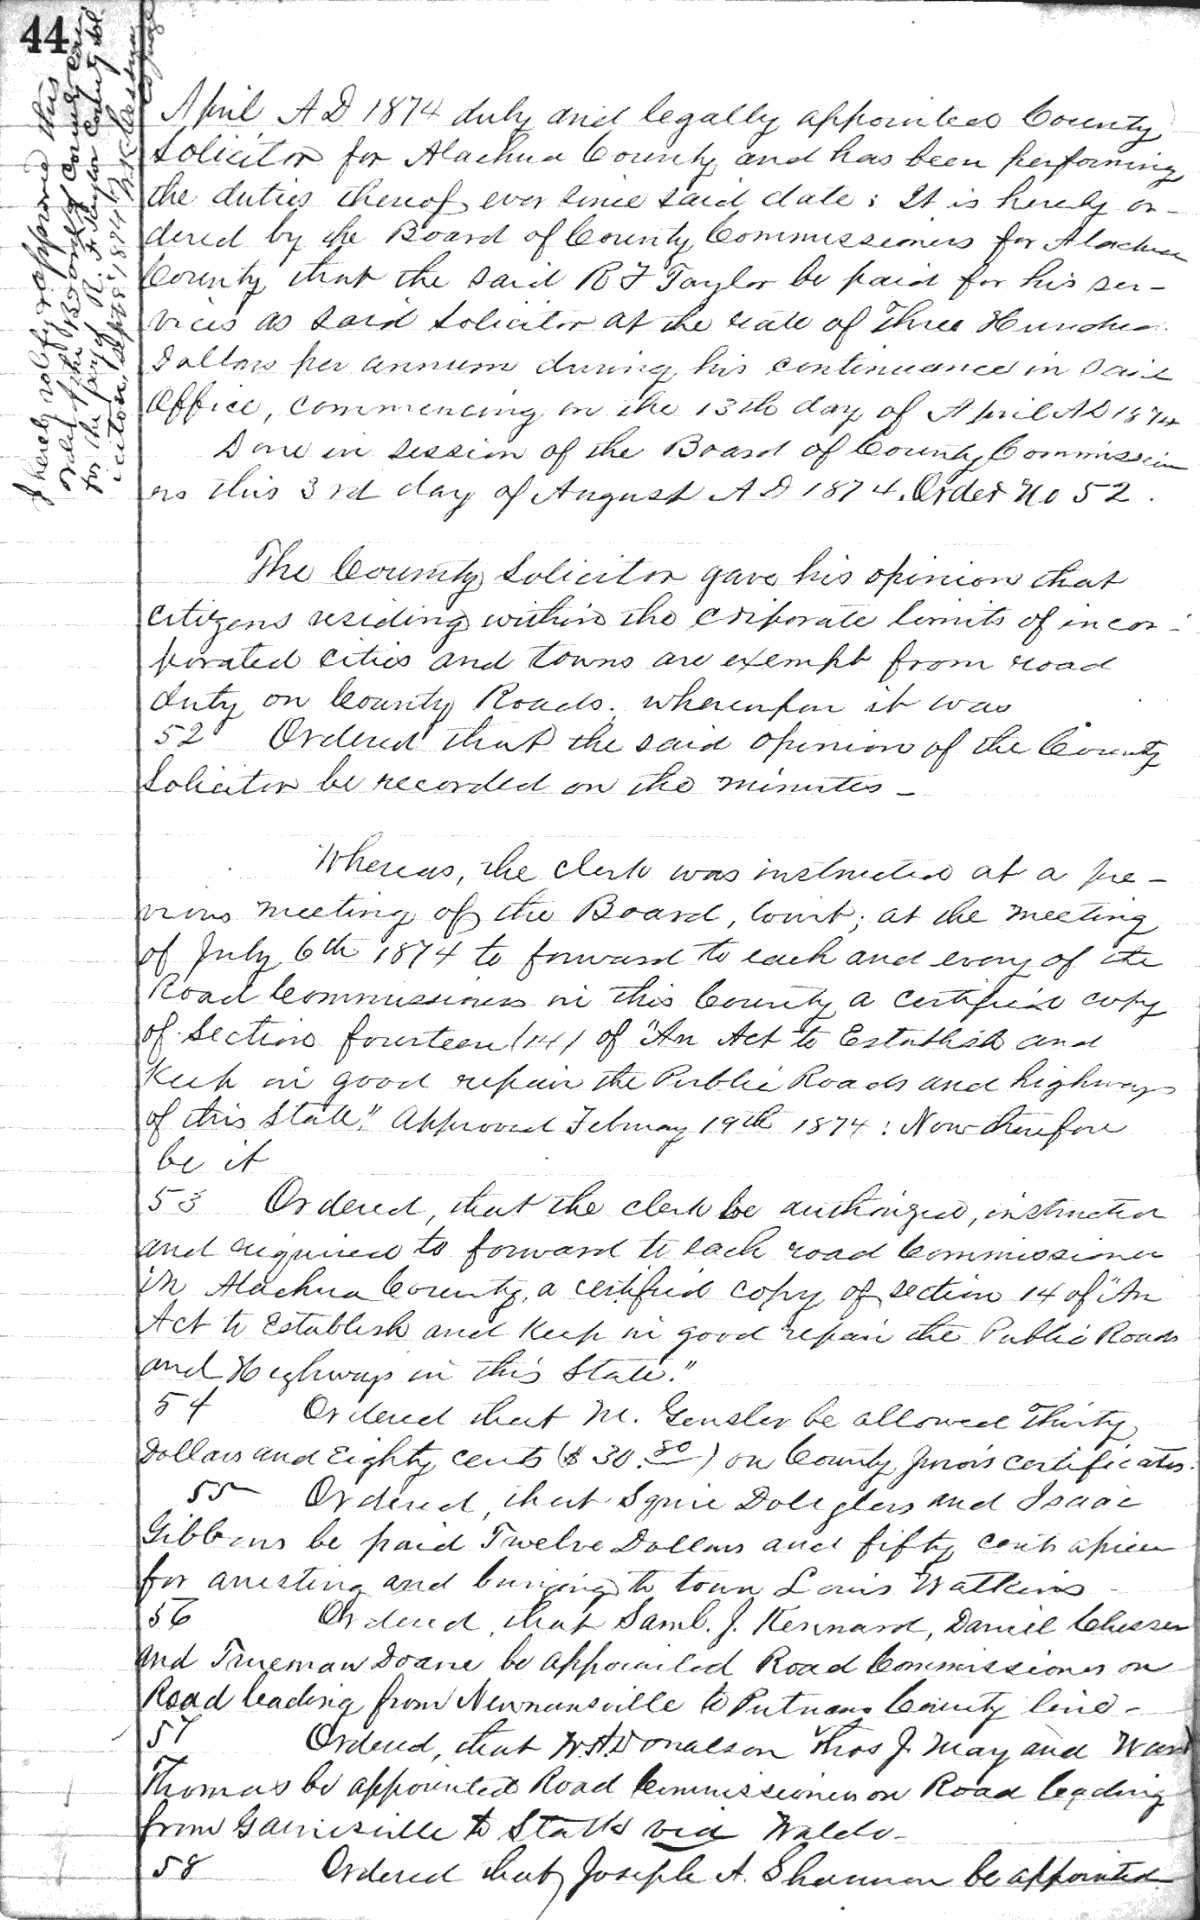 44
I hereby ratify & approve this
order of the Board of County Com
for the pay of R. F. Taylor County Sol
icitor, Sept 8, 1874
April A D 1874 duly and legally appointed County
Solicitor for Alachua County and has been performing
the duties thereof ever since said date: It is hereby or-
dered by the Board of County Commissioners for Alachua
County that the said R F Taylor be paid for his ser-
vices as said Solicitor at the rate of Three Hundred
Dollars per annum during his continuance in said
Office, commencing on the 13th day of April AD 1874
Done in session of the Board of County Commission
ers this 3rd day of August A D 1874. Order No 52.
The County Solicitor gave his opinion that
citizens residing within the corporate limits of incor-
porated cities and towns are exempt from road
duty on County Roads. whereupon it was
52 Ordered that the said opinion of the County
Solicitor be recorded on the minutes -
Whereas, the clerk was instructed at a pre-
vious meeting of the Board, towit; at the meeting
of July 6th 1874 to forward to each and every of the
Road Commissioners in this County a certified copy
of Section fourteen (14) of "An Act to Establish and
Keep in good repair the Public Roads and highways
of this State." Approved February 19th 1874: Now therefore
be it
53 Ordered, that the clerk be authorized, instructed
and required to forward to each road Commissioner
in Alachua County, a certified copy of section 14 of "An
Act to Establish and Keep in good repair the Public Roads
and Highways in this State."
54 Ordered that M. Gensler be allowed Thirty
Dollars and Eighty cents ($30.80) on County Jurors certificates.
55 Ordered, that Squire Douglass and Isaac
Gibbons be paid Twelve Dollars and fifty cents apiece
for arresting and bringing to town Louis Watkins
56 Ordered, that Saml. J. Kennard, Daniel Chesser
and Trueman Doane be appointed Road Commissioners on
Road leading from Newnansville to Putnam County line -
57 Ordered, that W H Donalson Thos J. May and Ward
Thomas be appointed Road Commissioners on Road leading
from Gainesville to Starke via Waldo -
58 Ordered that Joseph A. Shannon be appointed